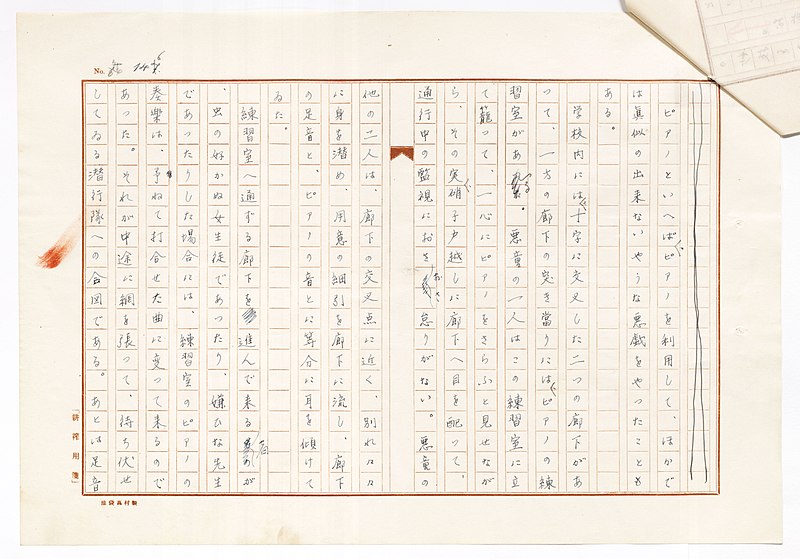 No. 14
ピアノといへばピアノを利用して、ほかで
は眞似の出来ないやうな悪戯をやつたことも
ある。
学校内には十字に交叉した二つの廊下があ
つて、一方の廊下の突き當りにはピアノの練
習室がある。悪童の一人はこの練習室に立
て籠つて、一心にピアノをさらふと見せなが
ら、その実硝子戸越しに廊下へ目を配つて、
通行中の監視におさおさ怠りがない。悪童の
他の二人は、廊下の交叉点に近く、別れ々々
に身を潜め、用意の細引を廊下に流し、廊下
の足音と、ピアノの音とに等分に耳を傾けて
ゐた。
練習室へ通ずる廊下を進んで来る者が
、虫の好かぬ女生徒であつたり、嫌ひな先生
であつたりした場合には、練習室のピアノの
奏楽は、予ねて打合せた曲に変つて来るので
あつた。それが中途に綱を張つて、待ち伏せ
してゐる潜行隊への合図である。あとは足音